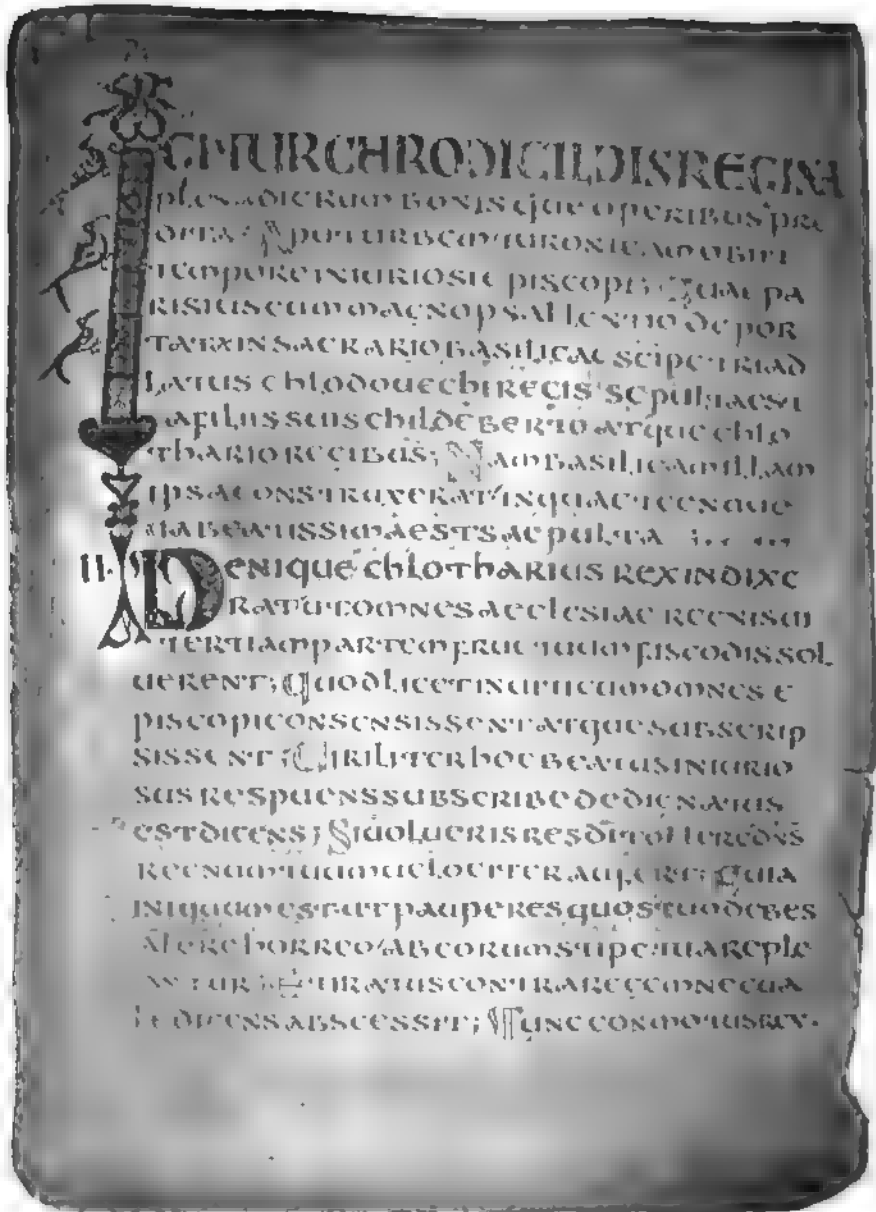 IGITUR CHRODICHILDIS REGINA
plena dierum bonisque operibus pre
dita; Apud urbem turonicam obiit
tempore iniuriosi episcopi; Quae pa
risius cum magno psallentio depor
tata in sacrario basilicae sci petri ad
latus chlodouechi regis sepulta est
a filiis suis childeberto atque chlo
thario regibus; Nam basilicam illam
ipsa construxerat in qua et genoue
fa beatissima est saepulta
II. Denique chlotharius rex indixe
rat ut omnes aeclesiae regni sui
tertiam partem fructuum fisco dissol
uerent; Quod licet inuiti cum omnes e
piscopi consensissent atque subscrip
sissent; Uiriliter hoc beatus iniurio
sus respuens subscribe dedignatus
est dicens; Si uolueris res di tollere dns
regnum tuum uelociter auferet; Quia
iniquum est ut pauperes quos tuo debes
alere horreo ab eorum stipe tua reple
antur; Et iratus contra regem nec ua
le dicens abscessit; Tunc conmotus rex.